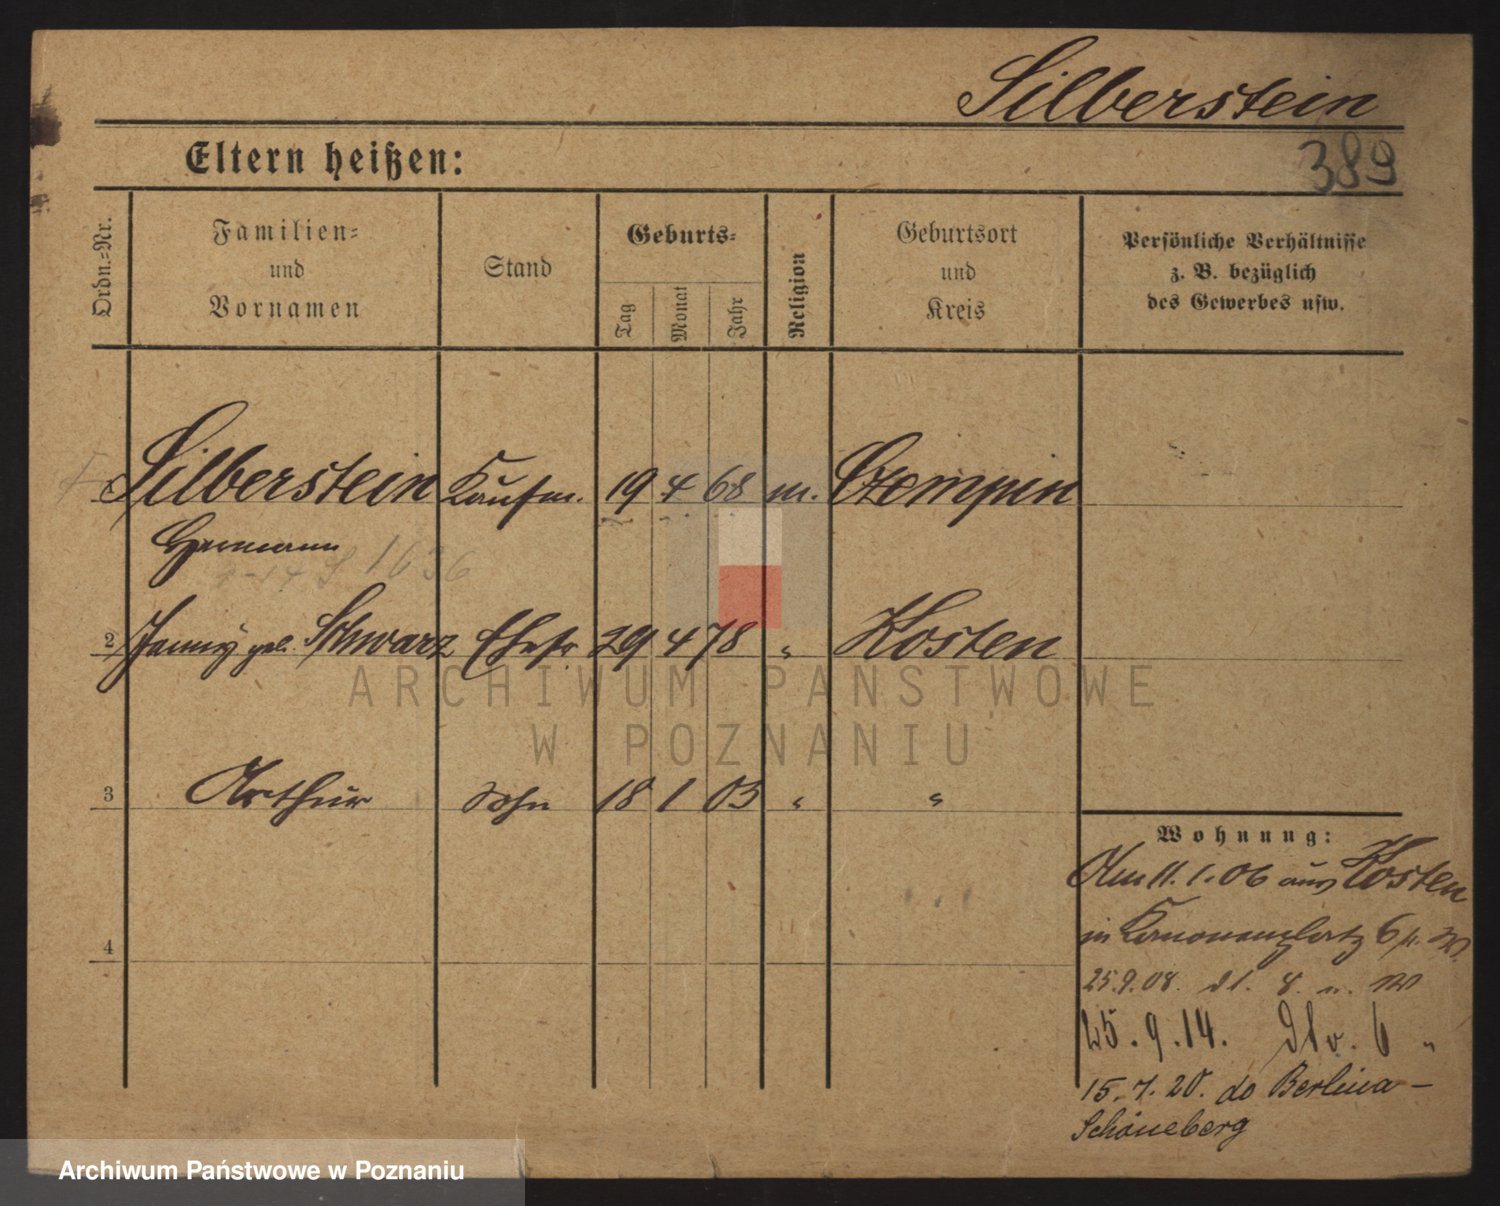 Silberstein
389
Eltern heißen:
Ordn.-Nr.
Familien- und Vornamen
Stand
Geburts-
Tag
Monat
Jahr
Religion
Geburtsort und Kreis
Persönliche Verhältnisse
z. B. bezüglich
des Gewerbes usw.
Silberstein Kaufm. 19 4 68 m. Czempin
Hermann
1636
2 Fanny geb. Schwarz Ehefr 29 4 78 " Kosten
3 Arthur Sohn 18 1 03 " "
4
Wohnung:
Am 11.1.06 aus Kosten
in Kanonenplatz 6 p. W.
25.9.08. dt. 8. n. W
25.9.14. 6 "
15.7.20. do Berlina-
Schöneberg
ARCHIWUM PAŃSTWOWE
W POZNANIU
Archiwum Państwowe w Poznaniu